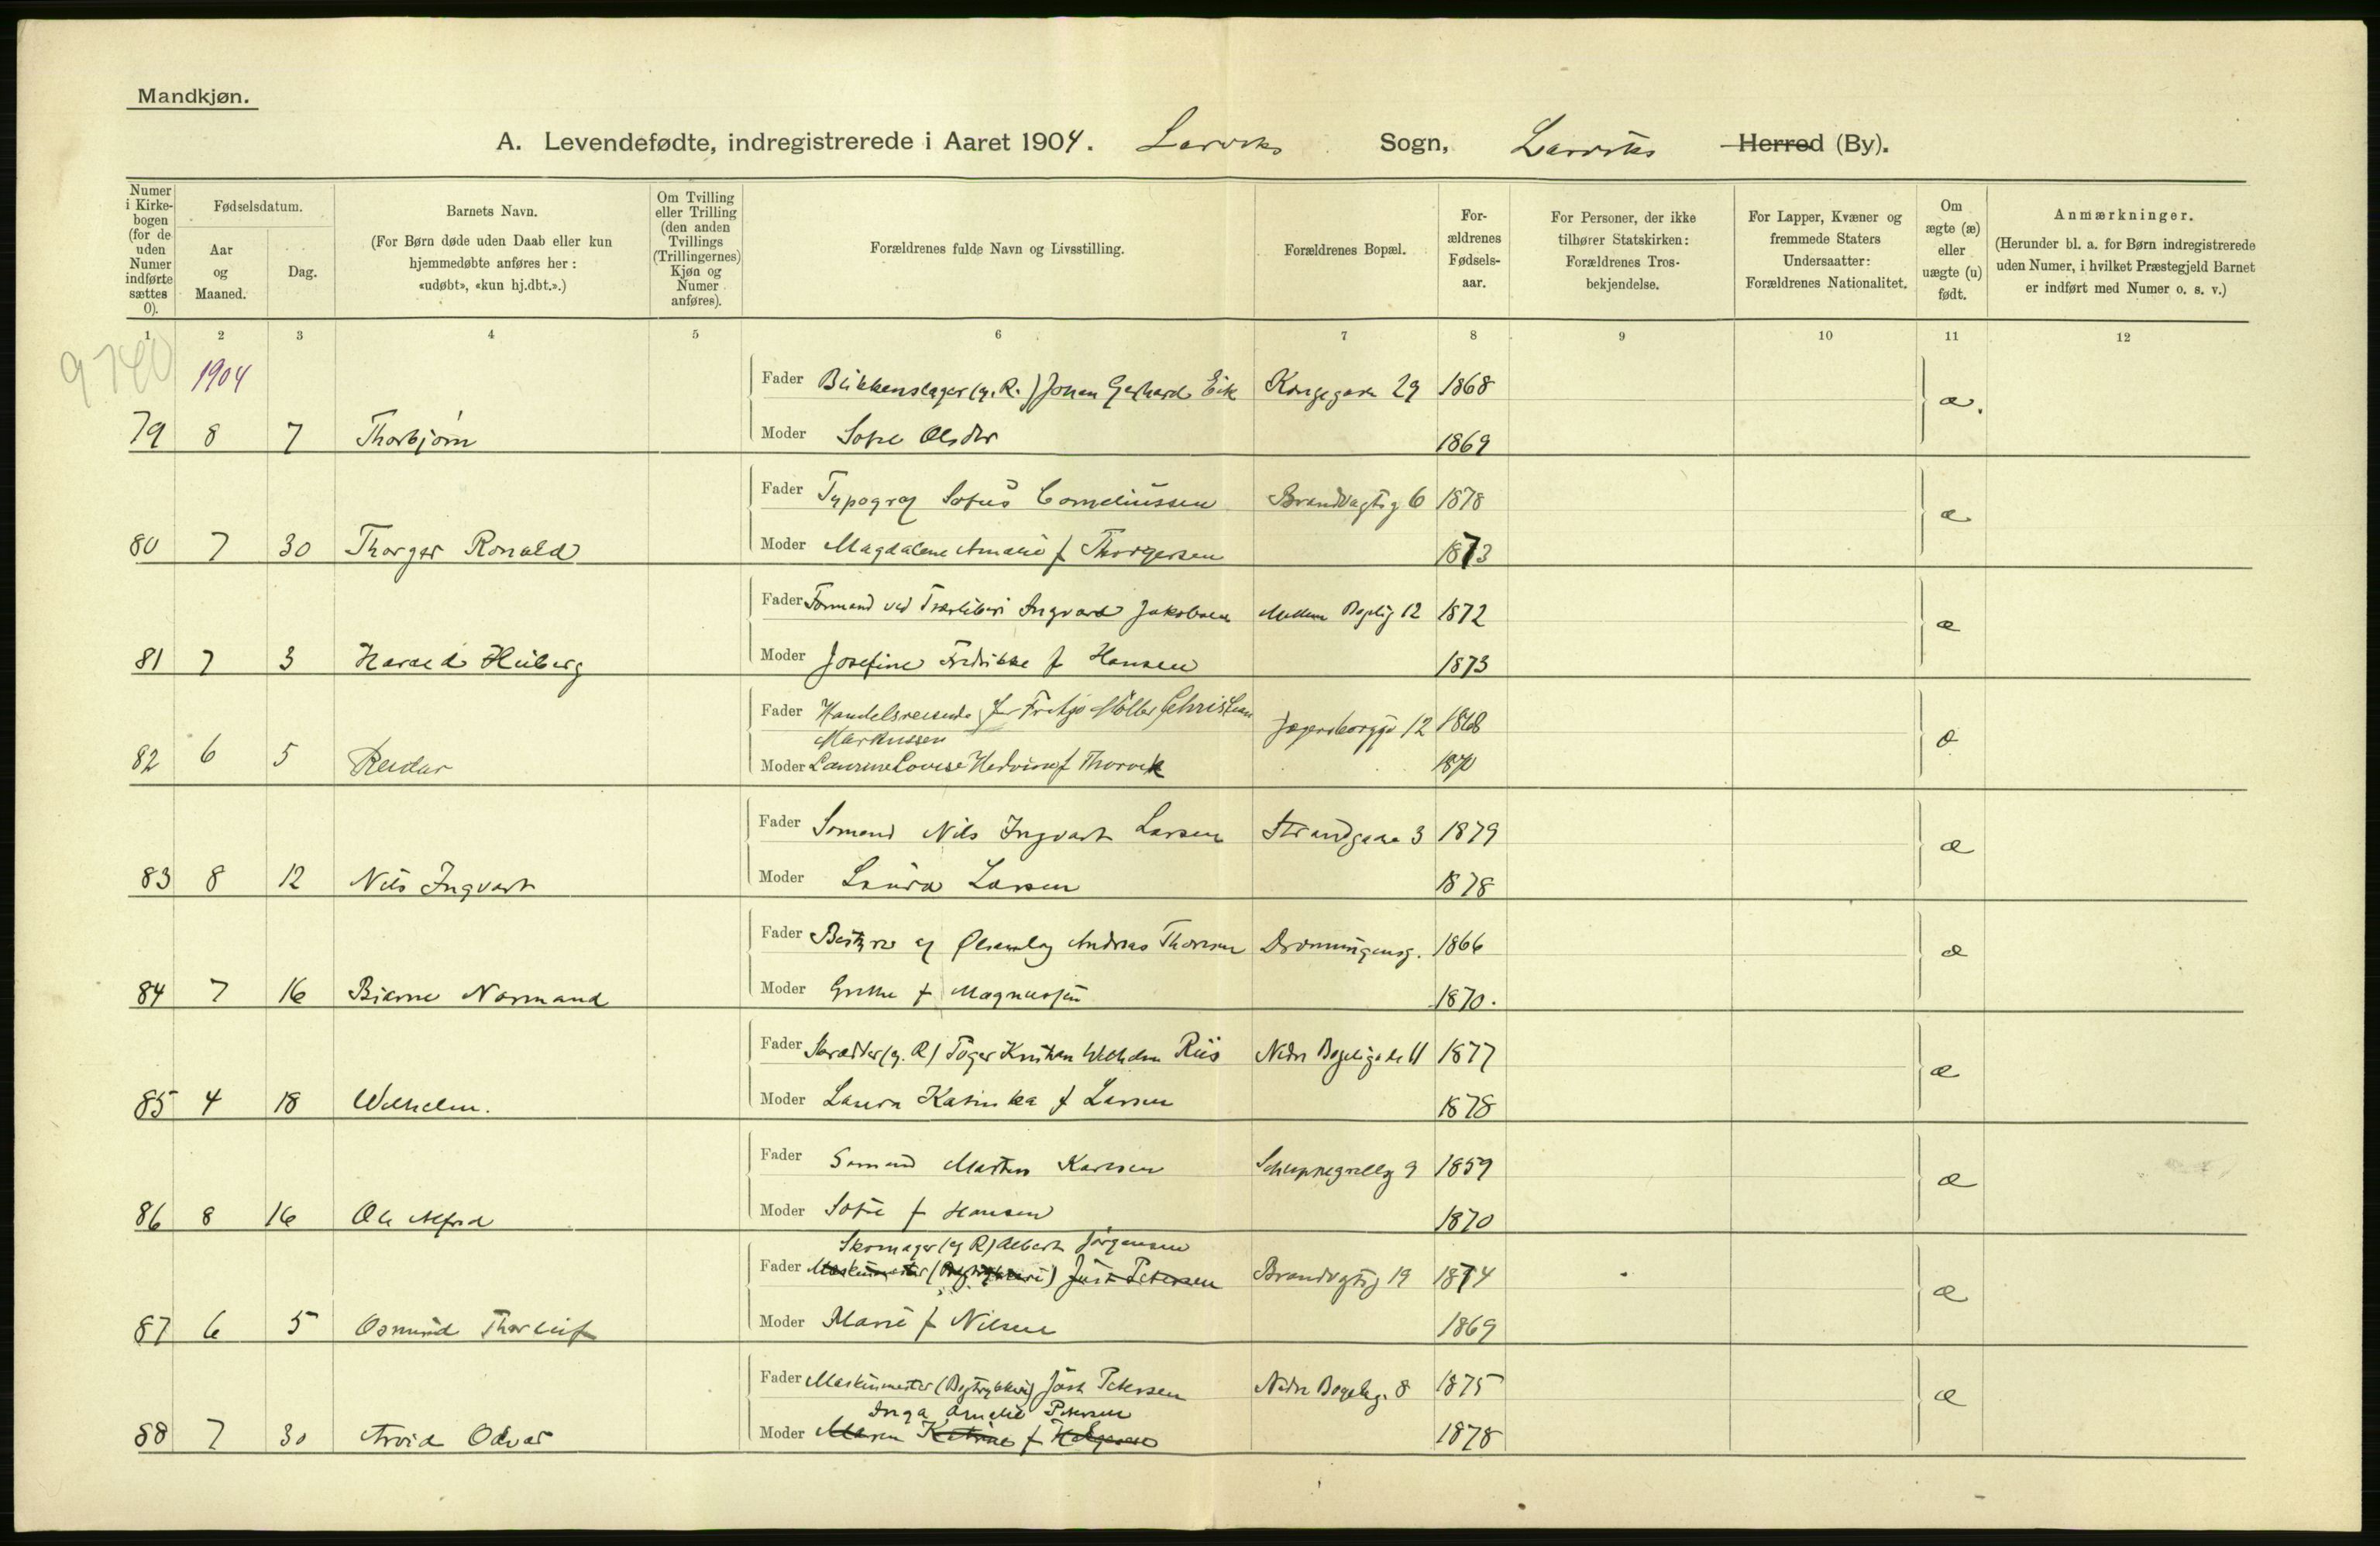 Mandkjøn.
A. Levendefødte, indregistrerede i Aaret 1904. Larviks Sogn, Larviks Herred (By).
Numer i Kirkebogen (for de uden Numer indførte sættes 0).
Fødselsdatum.
Aar og Maaned.
Dag.
Barnets Navn.
(For Børn døde uden Daab eller kun hjemmedøbte anføres her: «udøbt», «kun hj.dbt.».)
Om Tvilling eller Trilling (den anden Tvillings (Trillingernes) Kjøn og Numer anføres).
Forældrenes fulde Navn og Livsstilling.
Forældrenes Bopæl.
Forældrenes Fødselsaar.
For Personer, der ikke tilhører Statskirken: Forældrenes Trosbekjendelse.
For Lapper, Kvæner og fremmede Staters Undersaatter: Forældrenes Nationalitet.
Om ægte (æ) eller uægte (u) født.
Anmærkninger.
(Herunder bl. a. for Børn indregistrerede uden Numer, i hvilket Præstegjeld Barnet er indført med Numer o. s. v.)
1 2 3 4 5 6 7 8 9 10 11 12
9740 1904
Fader Blikkenslager (eg. R.) Johan Gerhard Eik Kongegaden 29 1868 æ.
79 8 7 Thorbjørn Moder Sofie Olsdtr 1869
Fader Typograf Sofus Corneliussen Brandvagtsg 6 1878 æ
80 7 30 Thorger Ronald Moder Magdalene Amalie f Thorgersen 1873
Fader Formand ved Træsliberi Ingvard Jakobsen Mellem Bøgelig 12 1872 æ
81 7 3 Harald Heiberg Moder Josefine Fredrikke f Hansen 1873
Fader Handelsreisende Fritjof Møller Christian Markussen Jegersborggd 12 1868 æ
82 6 5 Reidar Moder Laurine Lovise f Thorvik 1870
Fader Sømand Nils Ingvart Larsen Strandgade 3 1879 æ
83 8 12 Nils Ingvart Moder Laura Larsen 1878
Fader Bestyrer af Ølsamlag Andreas Thoresen Dronningensg. 1866 æ
84 7 16 Bjarne Normand Moder Grethe f Magnussen 1870.
Fader Skrædder (eg. R) Tøger Kristian Wilhelm Riis Nedre Bøgeligade 11 1877 æ
85 4 18 Wilhelm. Moder Laura Katinka f Larsen 1878
Fader Sømand Martin Karlsen Schuppegrellsg 9 1859 æ
86 8 16 Ole Alfred Moder Sofie f Hansen 1870
Skomager (eg R) Albert Jørgensen
Fader Maskinmester (Bogtrykkeri) Just Petersen Brandvgtsg 19 1874 æ
87 6 5 Osmund Thorleif Moder Marie f Nilsen 1869
Fader Maskinmester (Bogtrykkeri) Just Petersen Nedre Bøgelig. 8 1875 æ
Inga Amalie Petersen
88 7 30 Arvid Odvar Moder Maren Katrine f 1878